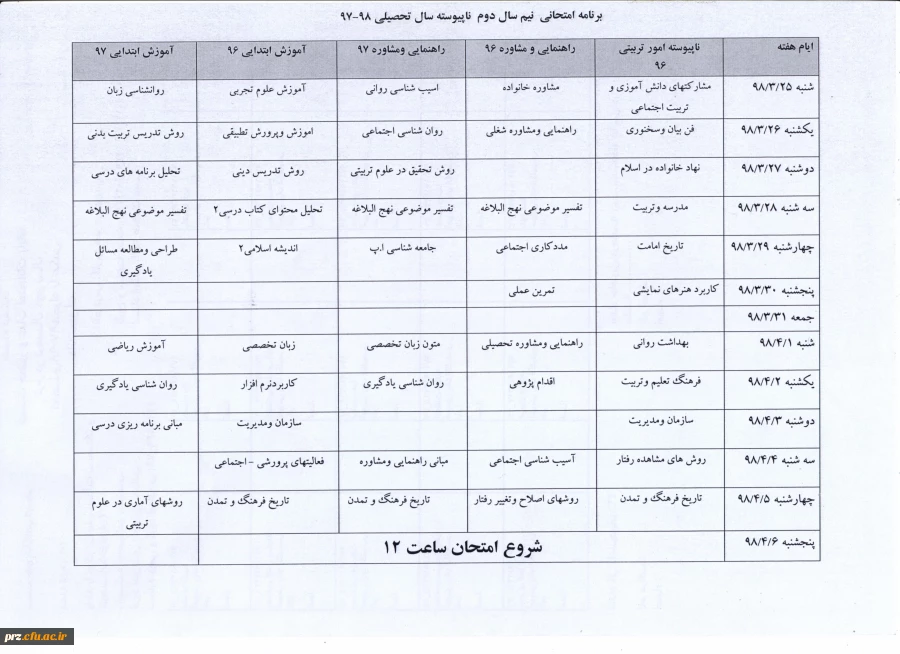 برنامه امتحانی نیم سال دوم ناپیوسته سال تحصیلی ۹۸-۹۷
ایام هفته ناپیوسته امور تربیتی ۹۶ راهنمایی و مشاوره ۹۶ راهنمایی ومشاوره ۹۷ آموزش ابتدایی ۹۶ آموزش ابتدایی ۹۷
شنبه ۹۸/۳/۲۵ مشارکتهای دانش آموزی و تربیت اجتماعی مشاوره خانواده اسیب شناسی روانی آموزش علوم تجربی روانشناسی زبان
یکشنبه ۹۸/۳/۲۶ فن بیان وسخنوری راهنمایی ومشاوره شغلی روان شناسی اجتماعی اموزش وپرورش تطبیقی روش تدریس تربیت بدنی
دوشنبه ۹۸/۳/۲۷ نهاد خانواده در اسلام روش تحقیق در علوم تربیتی روش تدریس دینی تحلیل برنامه های درسی
سه شنبه ۹۸/۳/۲۸ مدرسه وتربیت تفسیر موضوعی نهج البلاغه تفسیر موضوعی نهج البلاغه تحلیل محتوای کتاب درسی۲ تفسیر موضوعی نهج البلاغه
چهارشنبه ۹۸/۳/۲۹ تاریخ امامت مددکاری اجتماعی جامعه شناسی ا.پ اندیشه اسلامی۲ طراحی ومطالعه مسائل یادگیری
پنجشنبه ۹۸/۳/۳۰ کاربرد هنرهای نمایشی تمرین عملی
جمعه ۹۸/۳/۳۱
شنبه ۹۸/۴/۱ بهداشت روانی راهنمایی ومشاوره تحصیلی متون زبان تخصصی زبان تخصصی آموزش ریاضی
یکشنبه ۹۸/۴/۲ فرهنگ تعلیم وتربیت اقدام پژوهی روان شناسی یادگیری کاربردنرم افزار روان شناسی یادگیری
دوشنبه ۹۸/۴/۳ سازمان ومدیریت سازمان ومدیریت مبانی برنامه ریزی درسی
سه شنبه ۹۸/۴/۴ روش های مشاهده رفتار آسیب شناسی اجتماعی مبانی راهنمایی ومشاوره فعالیتهای پرورشی - اجتماعی
چهارشنبه ۹۸/۴/۵ تاریخ فرهنگ و تمدن روشهای اصلاح وتغییر رفتار تاریخ فرهنگ و تمدن تاریخ فرهنگ و تمدن روشهای آماری در علوم تربیتی
پنجشنبه ۹۸/۴/۶ شروع امتحان ساعت ۱۲
prz.cfu.ac.ir